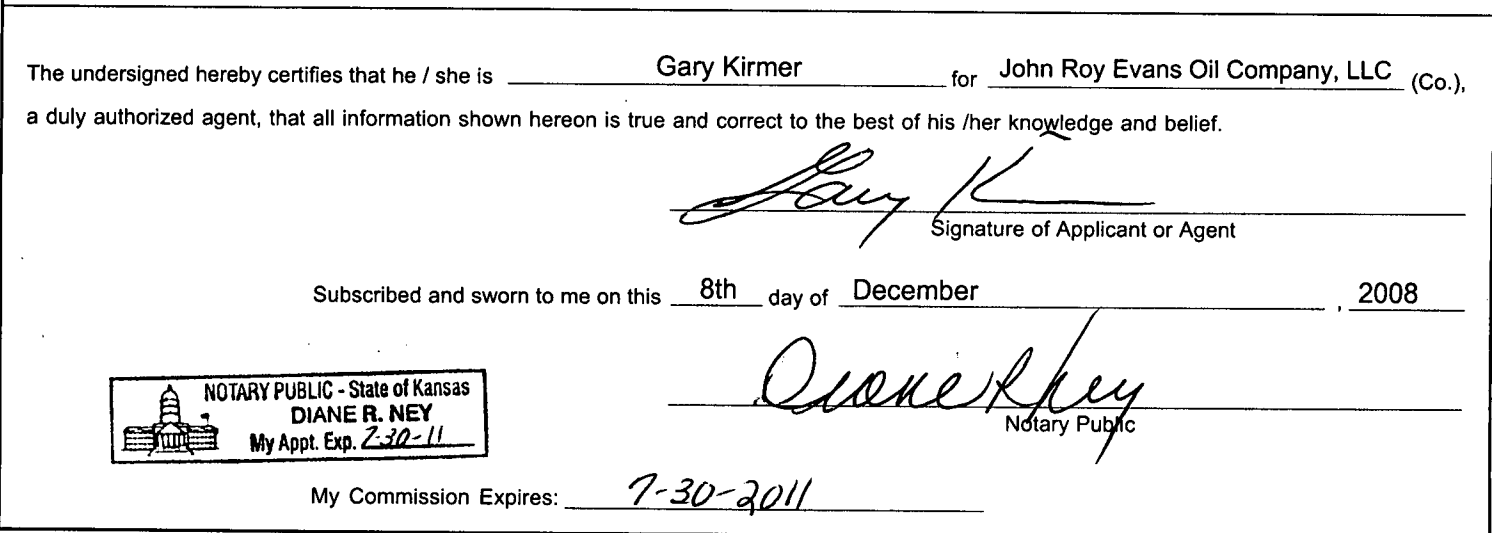 The undersigned hereby certifies that he / she is Gary Kirmer for John Roy Evans Oil Company, LLC (Co.),
a duly authorized agent, that all information shown hereon is true and correct to the best of his /her knowledge and belief.
Gary K
Signature of Applicant or Agent
Subscribed and sworn to me on this 8th day of December , 2008
Diane R Ney
Notary Public
NOTARY PUBLIC - State of Kansas
DIANE R. NEY
My Appt. Exp. 7-30-11
My Commission Expires: 7-30-2011